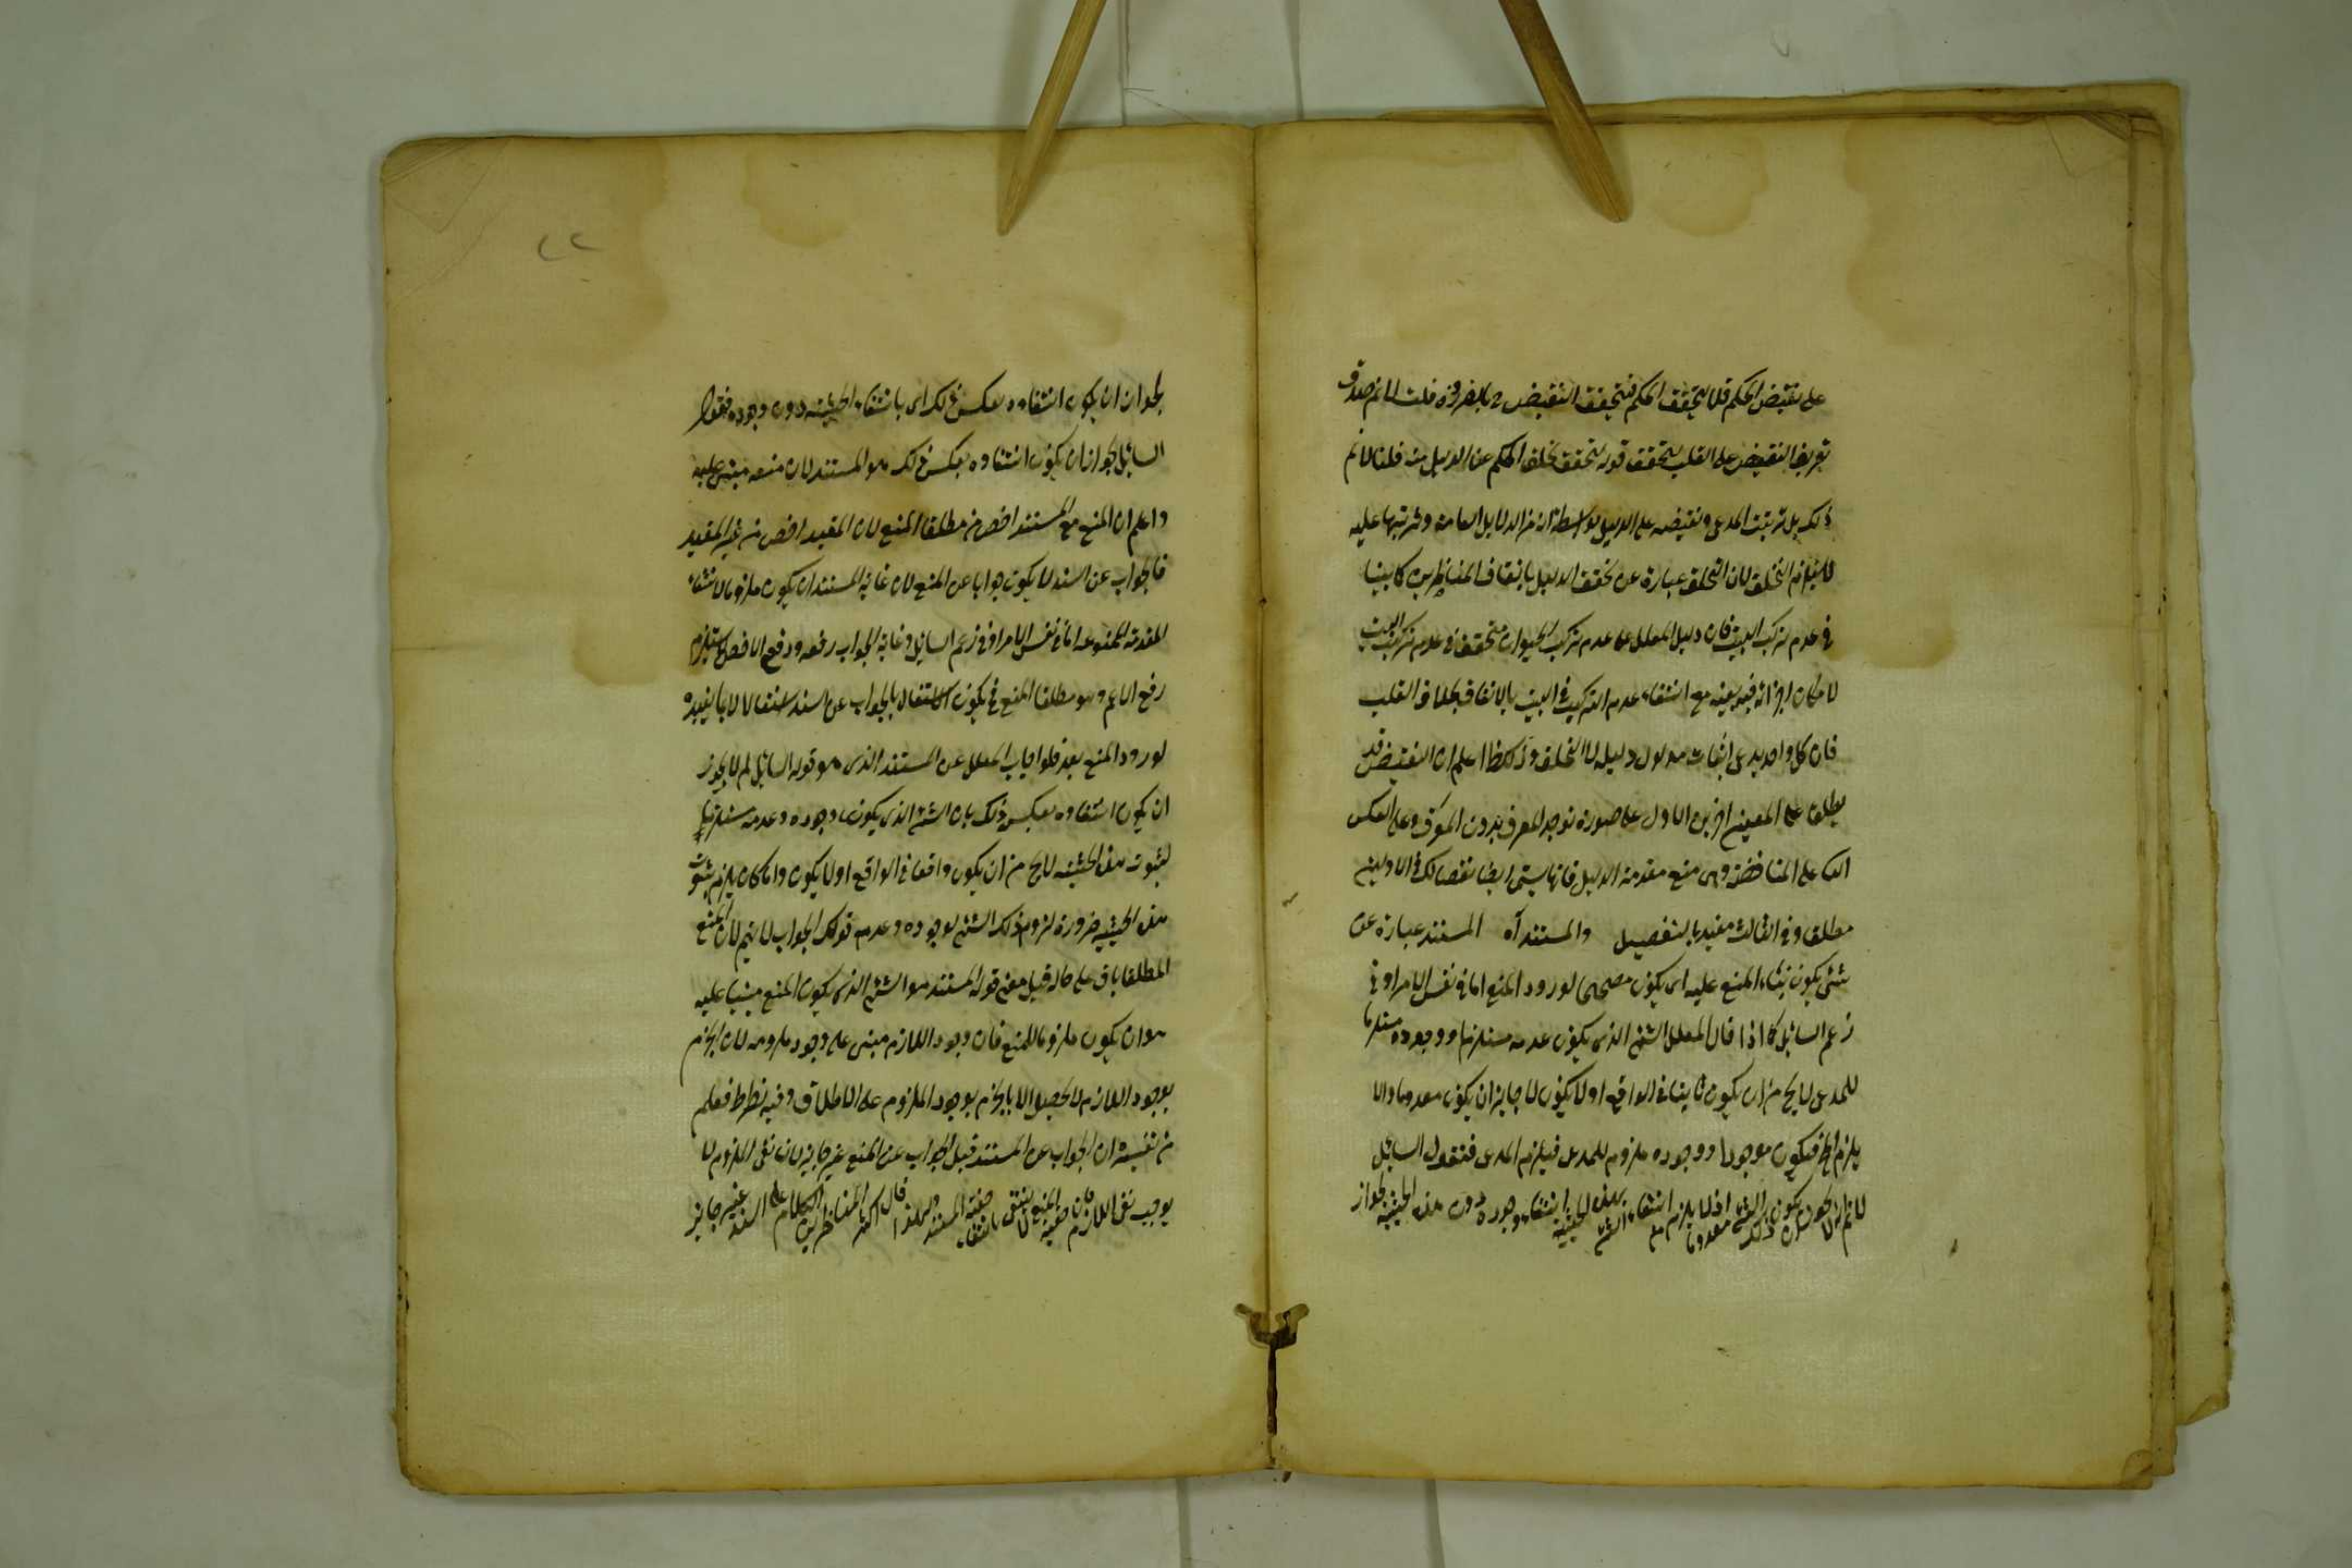 على نقيض الحكم قلا يتحقق الحكم فيتحقق النقيض ح بالضرورة قلت لا نم صدق
تعريف النقيض على القلب يتحقق قوله يتحقق تخلف الحكم عن الدليل منه قلنا لا نم
ذلك بل ترتيب المدعى ونقيضه على الدليل بواسطة انه من الدلايل العامة وترتبها عليه
لا يلزم التخلف لان التخلف عبارة عن تحقق الدليل باتفاق المتناظرين كما بينا
في عدم تركب البيت فان دليل المعلل على عدم تركب الحيوان متحقق في عدم تركب البيت
لامكان اجزائه فيه بعينه مع انتفاء عدم التركيب في البيت بالاتفاق بخلاف القلب
فان كل واحد يدعى اثبات مدلول دليله لا التخلف وذلك ظ اعلم ان النقيض قد
يطلق على المعنيين اخرين الاول على صورة توجد المعرف بدون المعرف وعلى العكس
الثا على المناقضة وهى منع مقدمة الدليل فانها يسمى ايضا نقضا لكن في الاولين
مطلقا وفي الثالث مقيد بالتفصيل والمستند آه المستند عبارة عن
شئ يكون بناء المنع عليه اى يكون مصححا لورود المنع اما في نفس الامر او في
زعم السائل كما اذا قال المعلل الشئ الذى يكون عدمه مستلزما ووجوده مستلزما
للمدعى لا يخ من ان يكون ثابتا في الواقع او لا يكون لا جايز ان يكون معدوما والا
يلزم الخ فيكون موجودا ووجوده ملزوم للمدعى فيلزم المدعى فنقول السائل
لا نم لم لا يجوز ان يكون ذلك الشئ معدوما اذ لا يلزم من انتفاء الشئ بهذه الحيثية انتفاء وجوده دون هذه الحيثية لجواز
لجواز ان يكون انتفاءه بعكس ذلك اى بانتفاء الحيثية دون وجوده فقول
السائل لجواز ان يكون انتفاءه بعكس ذلك هو المستند لان منعه مبنى عليه
واعلم ان المنع مع المستند اخص من مطلقا المنع لان المقيد اخص من غير المقيد
فالجواب عن السند لا يكون جوابا عن المنع لان غاية المستند ان يكون ملزوما لانتفاء
المقدمة الممنوعة اما في نفس الامر او في زعم السايل وغاية الجواب رفعه ورفع الاخص لا يستلزم
رفع الاعم وهو مطلقا المنع فيكون الاشتغال بالجواب عن السند اشتغالا لا بما يفيده
لورود المنع بعد فلو اجاب المعلل عن المستند الذى هو قوله السائل لم لا يجوز
ان يكون انتفاءه بعكس ذلك بان الشئ الذى يكون وجوده وعدمه مستلزما
لثبوت هذه الحيثية لا يخ من ان يكون واقعا في الواقع او لا يكون واما كان يلزم ثبوت
هذه الحيثية ضرورة لزوم ذلك الشئ لوجوده وعدمه قولك الجواب لا يتم لان المنع
المطلقا باق على حاله قيل معنى قوله المستند هو الشئ الذى يكون المنع مبنيا عليه
هو ان يكون ملزوما للمنع فان وجود اللازم مبنى على وجود ملزومه لان الجزم
بوجود اللازم لا يحصل الا بالجزم بوجود الملزوم على الاطلاق وفيه نظر ظ فعلم
من تفسيره ان الجواب عن المستند قبل الجواب عن المنع غير جايز لان نفى الملزوم لا
يوجب نفى اللازم فان صحة المنع لا ينتفى بانتفاء صحة المستند ولهذا قال اكثر المتناظرين الكلام على السند غير جايز
٢٢